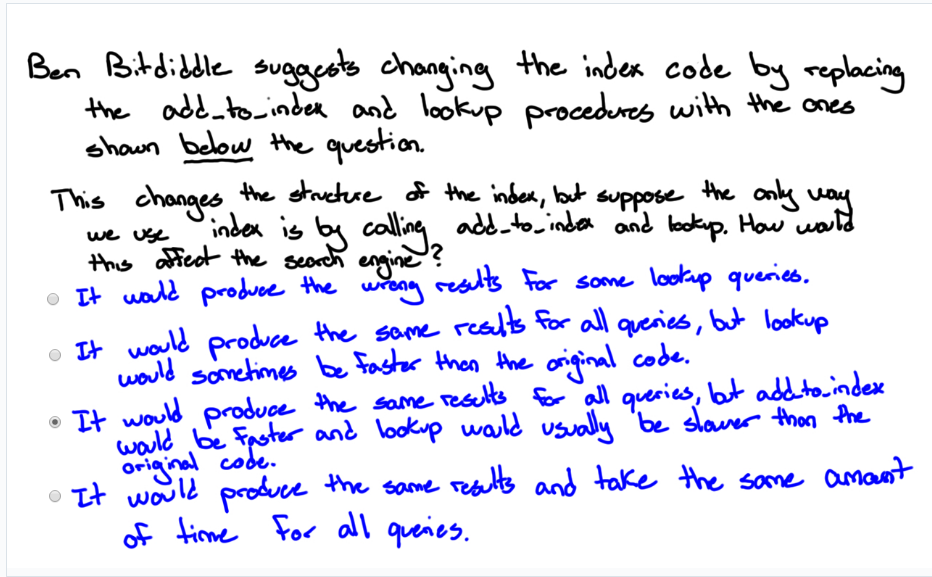 Ben Bitdiddle suggests changing the index code by replacing
the add_to_index and lookup procedures with the ones
shown below the question.
This changes the structure of the index, but suppose the only way
we use index is by calling add_to_index and lookup. How would
this affect the search engine?
It would produce the wrong results for some lookup queries.
It would produce the same results for all queries, but lookup
would sometimes be faster then the original code.
It would produce the same results for all queries, but add_to_index
would be faster and lookup would usually be slower than the
original code.
It would produce the same results and take the same amount
of time for all queries.